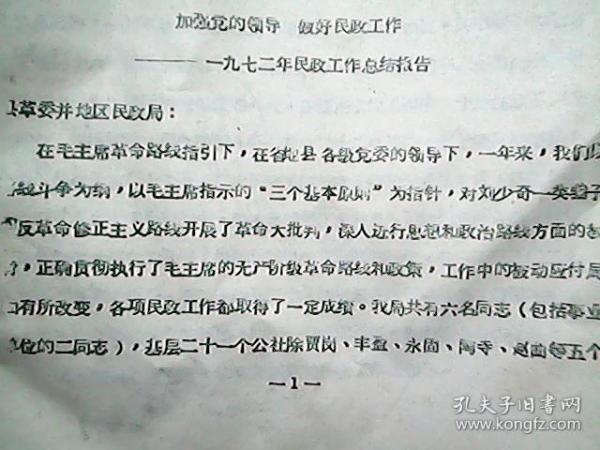 加强党的领导 做好民政工作
———一九七二年民政工作总结报告
县革委并地区民政局：
在毛主席革命路线指引下，在省地县各级党委的领导下，一年来，我们以
路线斗争为纲，以毛主席指示的“三个基本原则”为指针，对刘少奇一类骗子
的反革命修正主义路线开展了革命大批判，深入进行思想和政治路线方面的教
育，正确贯彻执行了毛主席的无产阶级革命路线和政策，工作中的被动应付局
面有所改变，各项民政工作都取得了一定成绩。我局共有六名同志（包括事业
单位的二同志），基层二十一个公社除贾岗、丰盈、永固、陶寺、赵曲等五个
—1—
孔夫子旧书网
www.kongfz.com